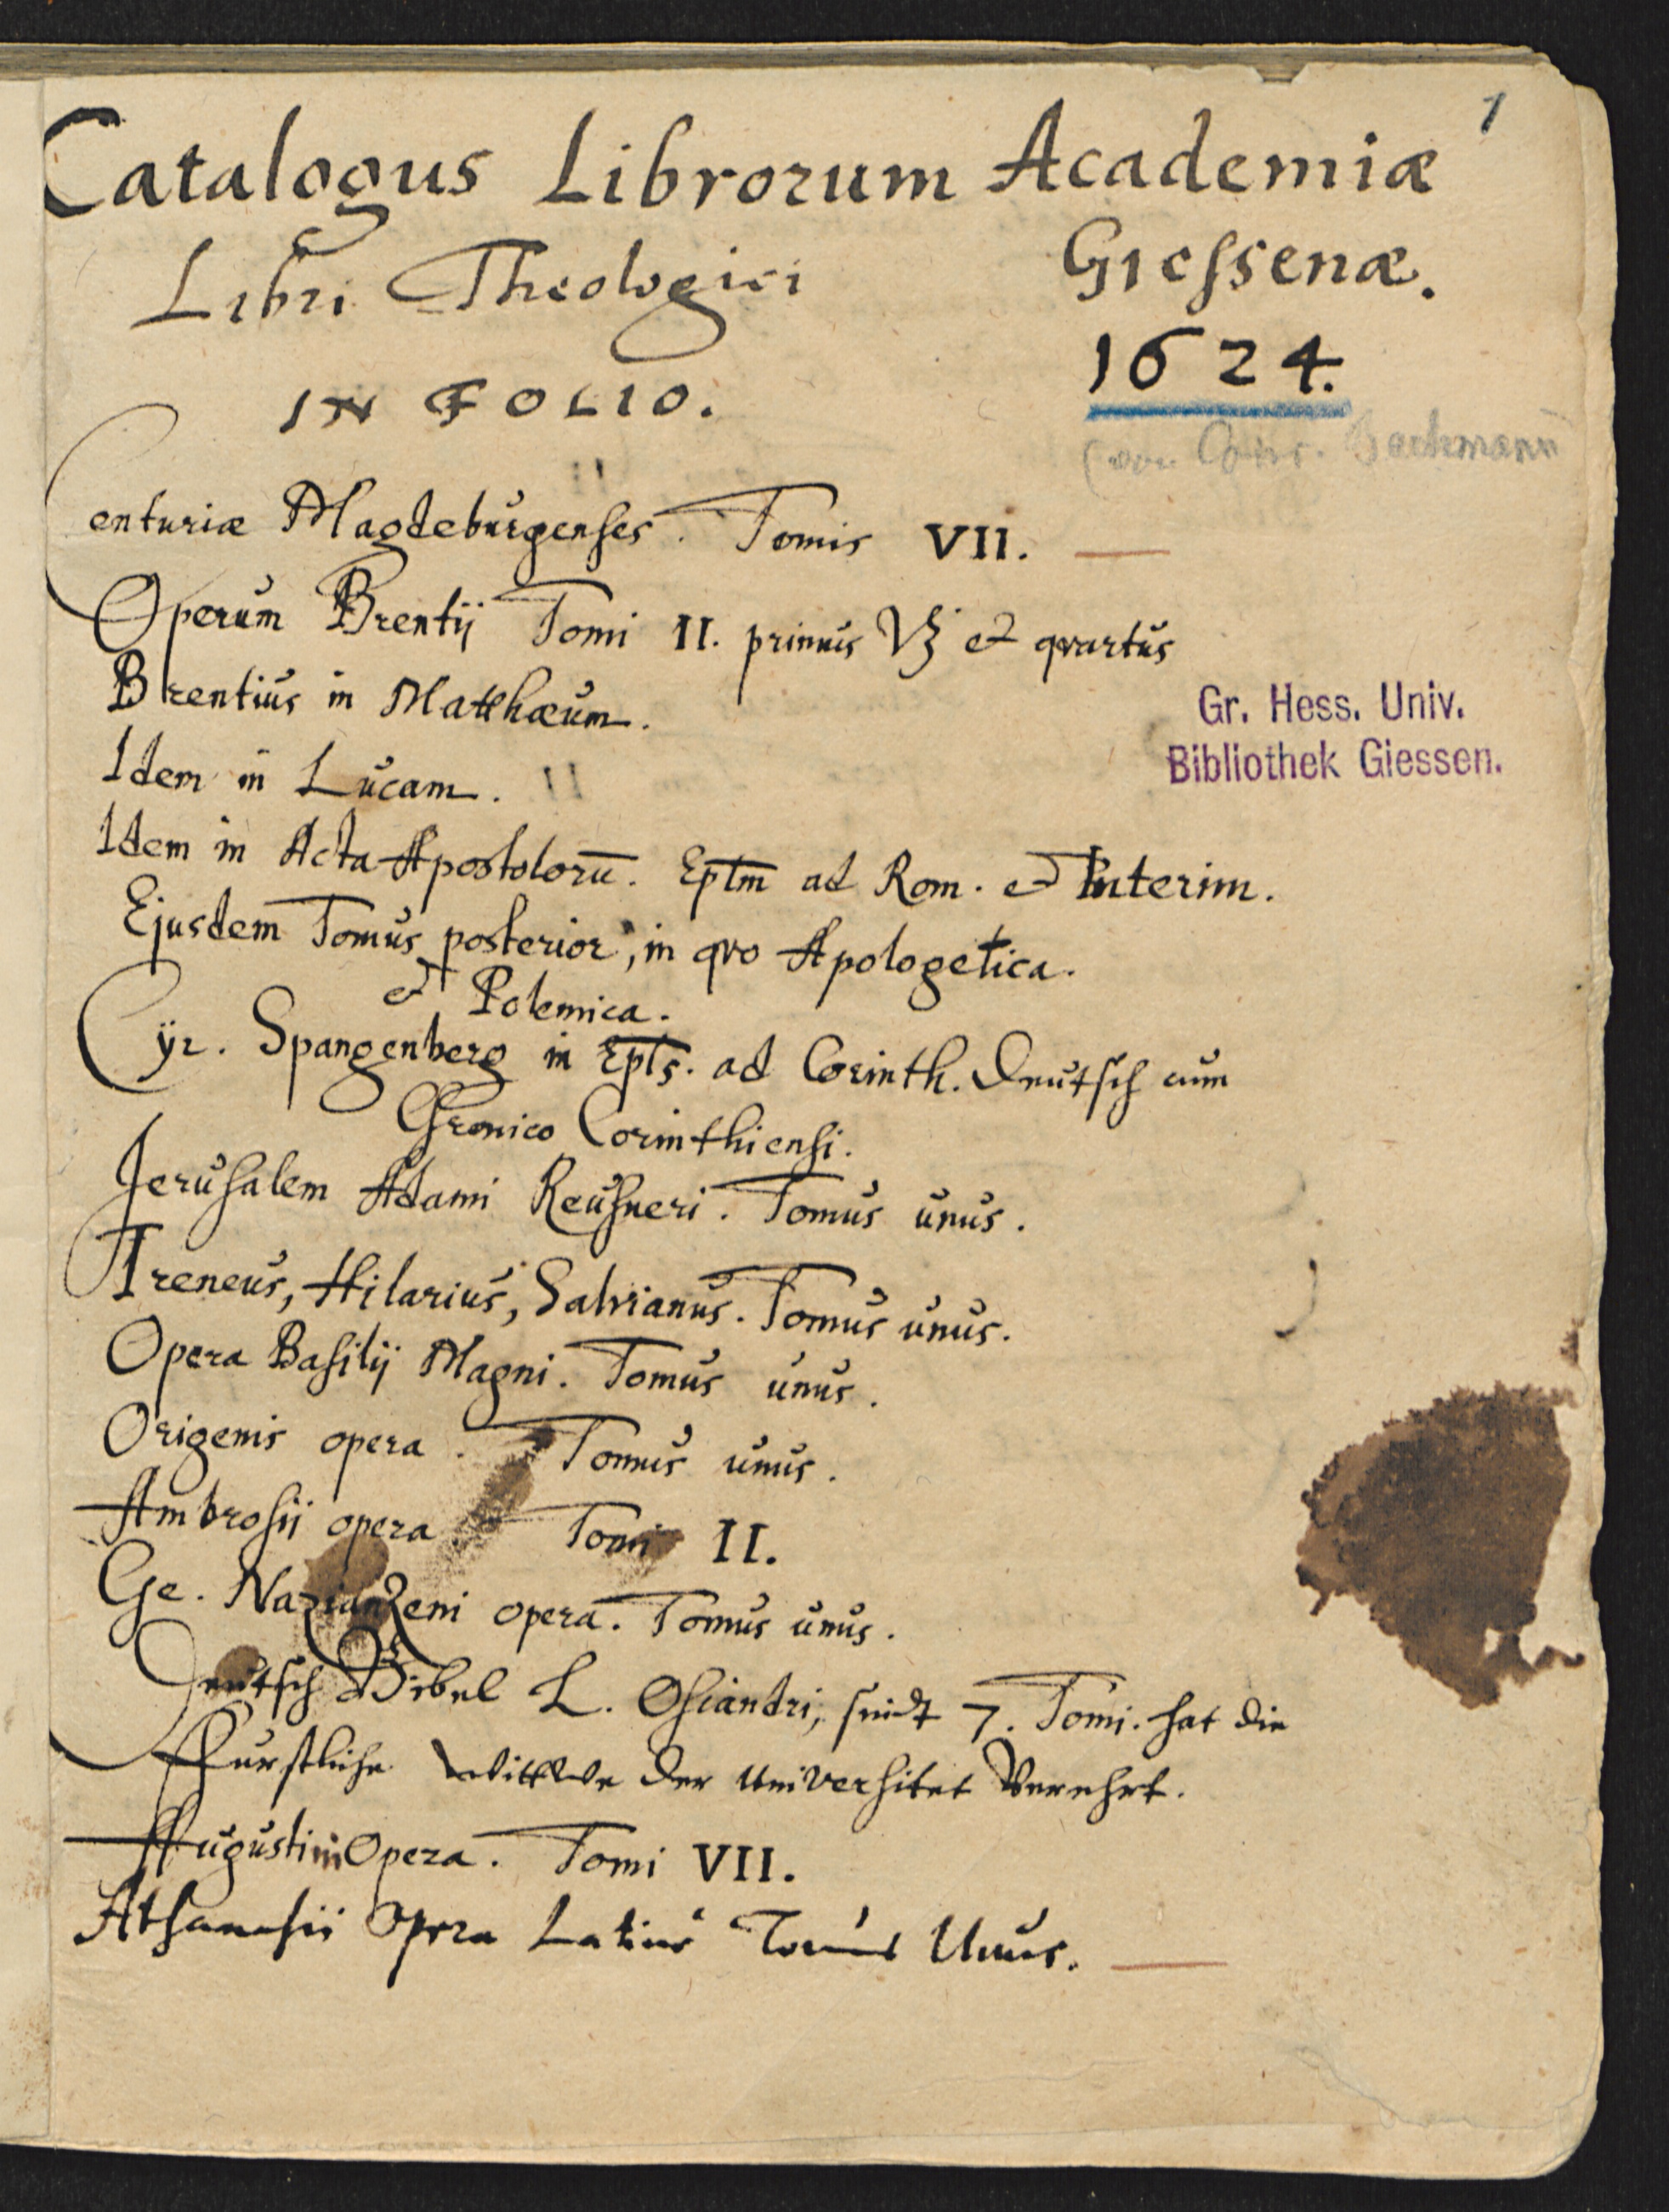 1
Catalogus Librorum Academiæ
Giessenæ.
Libri Theologici
1624.
IN FOLIO.
Centuriæ Magdeburgenses. Tomis VII.
Operum Brentij Tomi II. primus et qvartus
Brentius in Matthæum.
Gr. Hess. Univ.
Bibliothek Giessen.
Idem in Lucam.
Idem in Acta Apostolorū. Eptm ad Rom. et Interim.
Ejusdem Tomus posterior, in qvo Apologetica.
et Polemica.
Cÿr. Spangenberg in Epls. ad Corinth. Deutsch cum
Chronico Corinthiensi.
Jerusalem Adami Reusneri. Tomus unus.
Ireneus, Hilarius, Salvianus. Tomus unus.
Opera Basilij Magni. Tomus unus.
Origenis opera. Tomus unus.
Ambrosij opera Tomi II.
Ge. Nazianzeni opera. Tomus unus.
Deutsch Bibel L. Osiandri, sindt 7. Tomi. hat die
Fürstliche Wittwe der Universitet Verehrt.
Augustini Opera. Tomi VII.
Athanasii Opera Latine Tomus Unus.